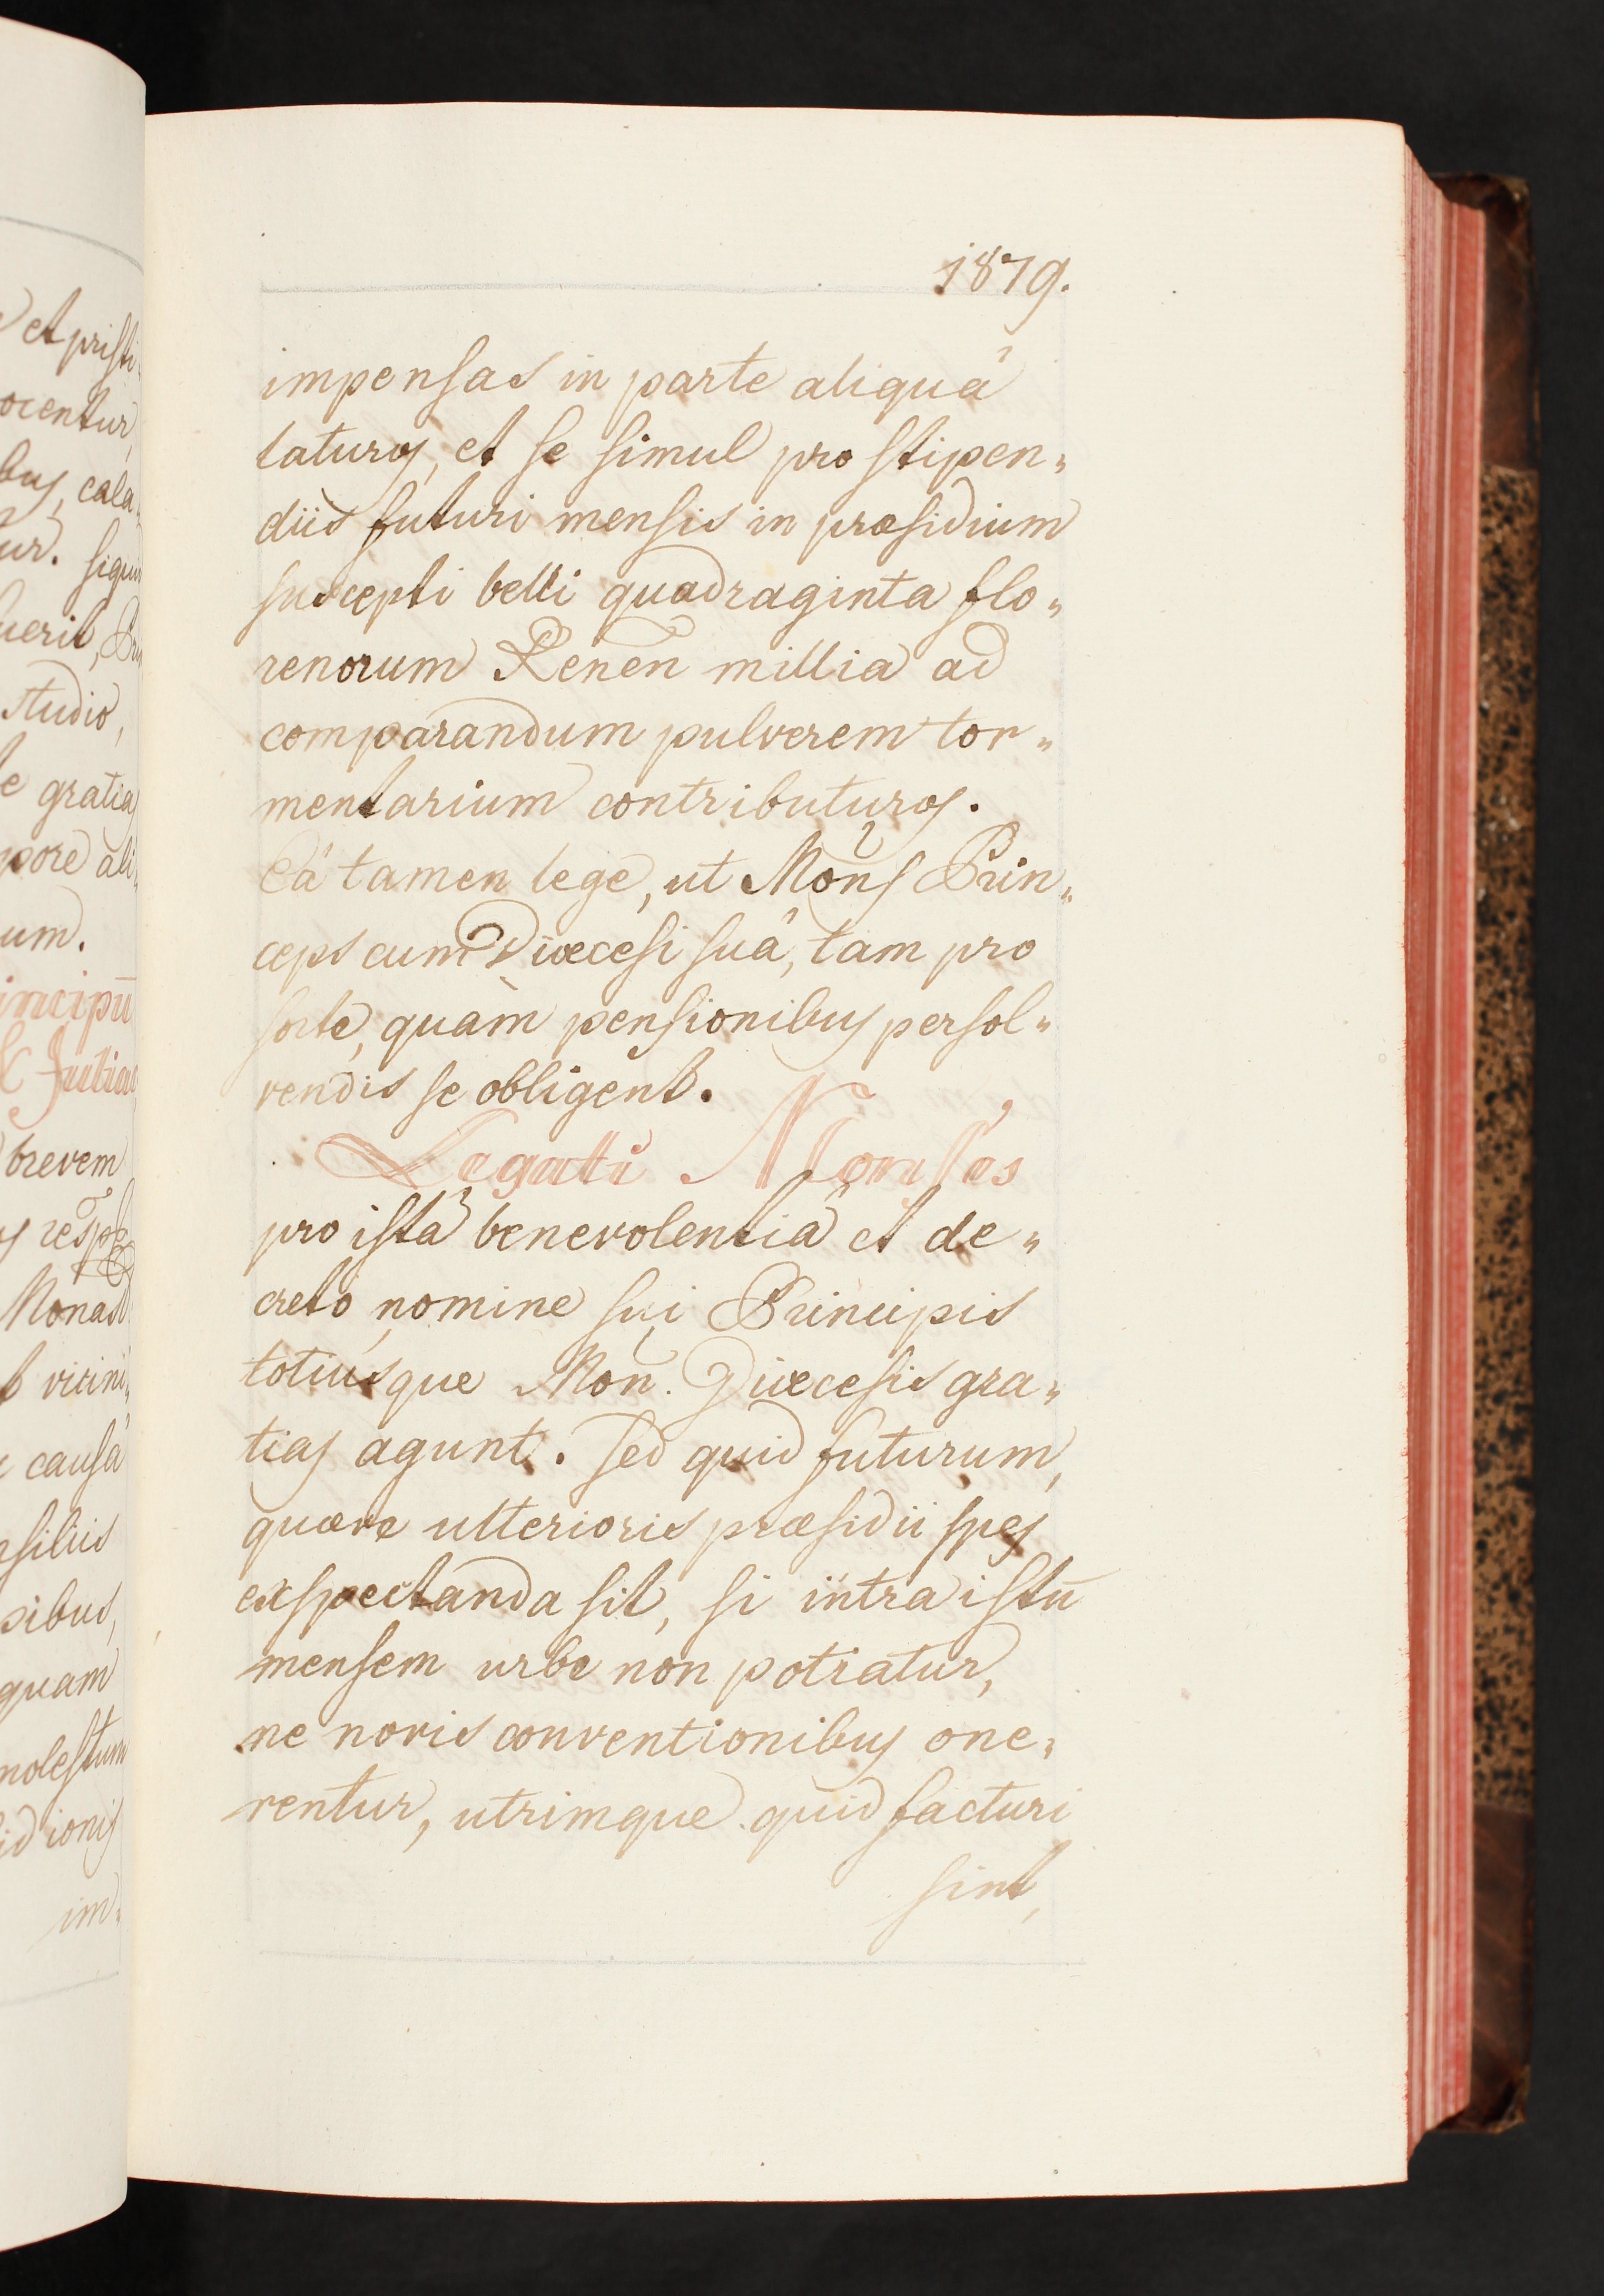 1879.
impensas in parte aliquâ
laturos, et se simul pro stipen„
diis futuri mensis in præsidium
suscepti belli quadraginta flo„
renorum Renen̄ millia ad
comparandum pulverem tor„
mentarium contributuros.
Eâ tamen lege, ut Mon̄s Prin„
ceps cum Diœcesi suâ, tam pro
sorte, quàm pensionibus persol„
vendis se obligent.
Legati Mon'ses
pro istâ benevolentiâ et de„
creto nomine sui Principis
totiusque Mon̄. Diœcesis gra„
tias agunt. Sed quid futurum,
quæve ulterioris præsidii spes
exspectanda sit, si intra istū
mensem urbe non potiatur,
ne novis conventionibus one„
rentur, utrimque quid facturi
sint,
et pristi„
ocentur,
bus, cala„
ur. siquid
uerit,
studio,
gratias
pore ali„
um.
incipū
& Juliac
brevem
Monast
vicini„
causâ
nsiliis
sibus,
quam
molestum
idionis
im„